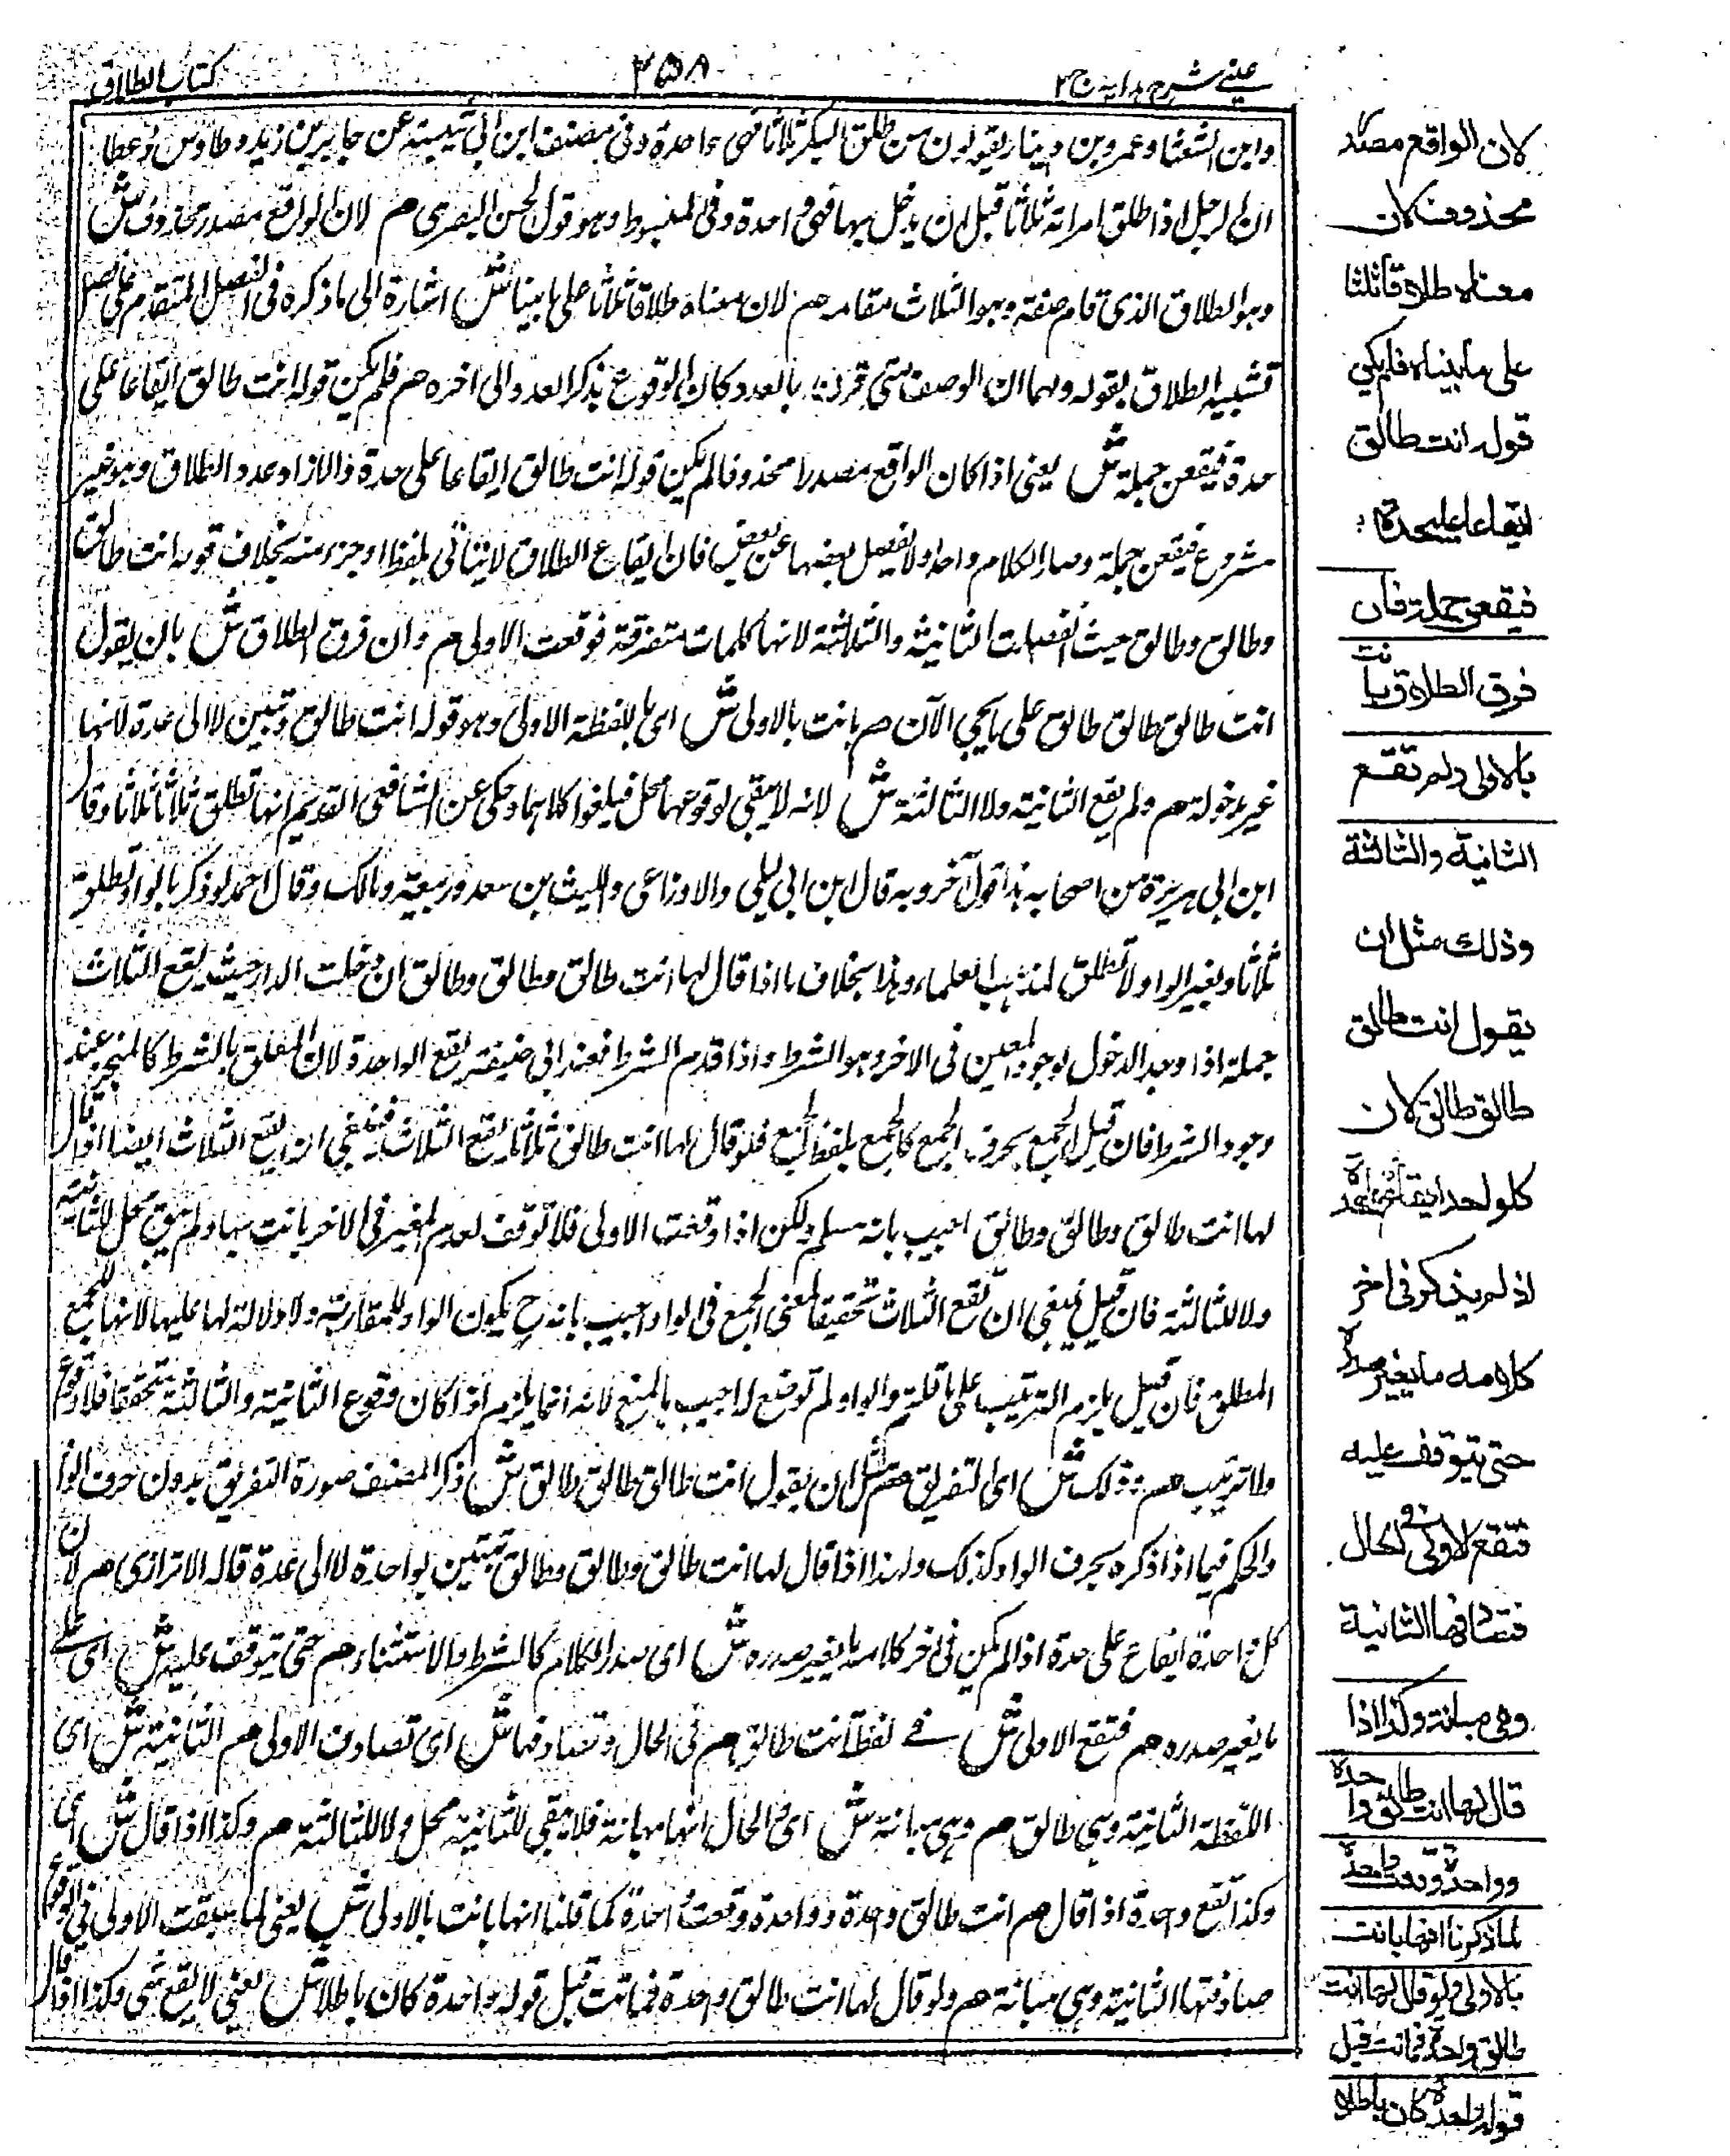 عيني شرح هداية ج ٢
٣٥٨
كتاب الطلاق
وابن الشعثا وعمرو بن دينار يقولون من طلق البكر ثلاثا فهي واحدة وفي مصنف ابن ابي شيبة عن جابر بن زيد وطاوس وعطا
ان الرجل اذا طلق امراته ثلاثا قبل ان يدخل بها فهي واحدة وفي المبسوط وهو قول الحسن البصرى هم لان الواقع مصدر محذوف ش
وهو الطلاق الذى قام صفته وهو الثلاث مقامه هم لان معناه طلاقا ثلاثا على ما بينا ش اشارة الى ما ذكره في الفصل المتقدم على فصل
تشبيه الطلاق بقوله ولهما ان الوصف متى قرن بالعدد كان الوقوع بذكر العدد الى اخره هم فلم يكن قوله انت طالق ايقاعا على
حدة فيقعن جملة ش يعنى اذا كان الواقع مصدرا محذوفا لم يكن قوله انت طالق ايقاعا على حدة والا زاد عدد الطلاق وهو غير
مشروع فيقعن جملة وصار الكلام واحدا ولا يفصل بعضها عن بعض فان ايقاع الطلاق لا يتاتى بلفظ اوجز منه بخلاف قوله انت طالق
وطالق وطالق حيث انفصلت الثانية والثالثة لانها كلمات متفرقة فوقعت الاولى هم وان فرق الطلاق ش بان يقول
انت طالق طالق طالق على ما يجي الآن هم بانت بالاولى ش اى باللفظة الاولى وهو قوله انت طالق وتبين لا الى عدة لانها
غير مدخولة هم ولم يقع الثانية ولا الثالثة ش لانه لا يبقى لوقوعهما محل فيلغوا كلاهما وحكى عن الشافعى القديم انها تطلق ثلاثا ثلاثا وقال
ابن ابي هريرة من اصحابه هذا قول آخر وبه قال ابن ابي ليلى والاوزاعى والليث بن سعد وربيعة ومالك وقال احمد لو ذكر بالواو تطلق
ثلاثا وبغير الواو لا تطلق لمذهب العلماء وهذا بخلاف ما اذا قال لها انت طالق وطالق وطالق ان دخلت الدار حيث يقع الثلاث
جملة اذا وجد الدخول لوجود المعين في الاخر وهو الشرط واذا قدم الشرط فعند ابي حنيفة يقع الواحدة لان المعلق بالشرط كالمنجز عند
وجود الشرط فان قيل الجمع بحرف الجمع كالجمع بلفظ الجمع فلو قال لها انت طالق ثلاثا يقع الثلاث فينبغي ان يقع الثلاث ايضا اذا قال
لها انت طالق وطالق وطالق اجيب بانه مسلم ولكن اذا وقعت الاولى فلا توقف لعدم المغير في الاخر بانت بها ولم يبق محل للثانية
ولا للثالثة فان قيل ينبغي ان تقع الثلاث تحقيقا لمعنى الجمع في الواو اجيب بانه ح يكون الواو للمقارنة ولا دلالة لها عليها لانها للجمع
المطلق فان قيل يلزم الترتيب على ما قلتم والواو لم توضع له اجيب بالمنع لانه انما يلزم اذا كان وقوع الثانية والثالثة متحققا فلا وقوع
ولا ترتيب هم وذلك ش اى التفريق هم مثل ان يقول انت طالق طالق طالق ش ذكر المصنف صورة التفريق بدون حرف الواو
والحكم فيما اذا ذكره بحرف الواو كذلك ولهذا اذا قال لها انت طالق وطالق وطالق تبين بواحدة لا الى عدة قاله الاترازى هم لان
كل واحدة ايقاع على حدة اذا لم يكن في اخر كلامه ما يغير صدره ش اى صدر الكلام كالشرط والاستثناء هم حتى يتوقف عليه ش اى على
ما يغير صدره هم فتقع الاولى ش في لفظ انت طالق هم في الحال وتصادفها ش اى تصادف الاولى هم الثانية ش اى
اللفظة الثانية وهى طالق هم وهى مبانة ش اى في الحال انها مبانة فلا يبقى للثانية محل ولا للثالثة هم وكذا اذا قال ش اى
وكذا تقع واحدة اذا قال هم انت طالق واحدة وواحدة وقعت واحدة كما قلنا انها بانت بالاولى ش يعنى لما سبقت الاولى في الوقوع
صادفتها الثانية وهى مبانة هم ولو قال لها انت طالق واحدة فماتت قبل قوله واحدة كان باطلا ش يعنى لا يقع شى وكذا اذا قال
لان الواقع مصدر
محذوف لان
معناه طلاقا ثلثا
على ما بيناه فلم يكن
قوله انت طالق
ايقاعا على حدة
فيقعن جملة فان
فرق الطلاق بانت
بالاولى ولم تقع
الثانية والثالثة
وذلك مثل ان
يقول انت طالق
طالق طالق لان
كل واحدة ايقاع على حدة
اذ لم يذكر في اخر
كلامه ما يغير صدره
حتى يتوقف عليه
فتقع الاولى في الحال
فتصادفها الثانية
وهى مبانة وكذا اذا
قال لها انت طالق واحدة
وواحدة وقعت واحدة
لما ذكرنا انها بانت
بالاولى ولو قال لها انت
طالق واحدة فماتت قبل
قوله واحدة كان باطلا